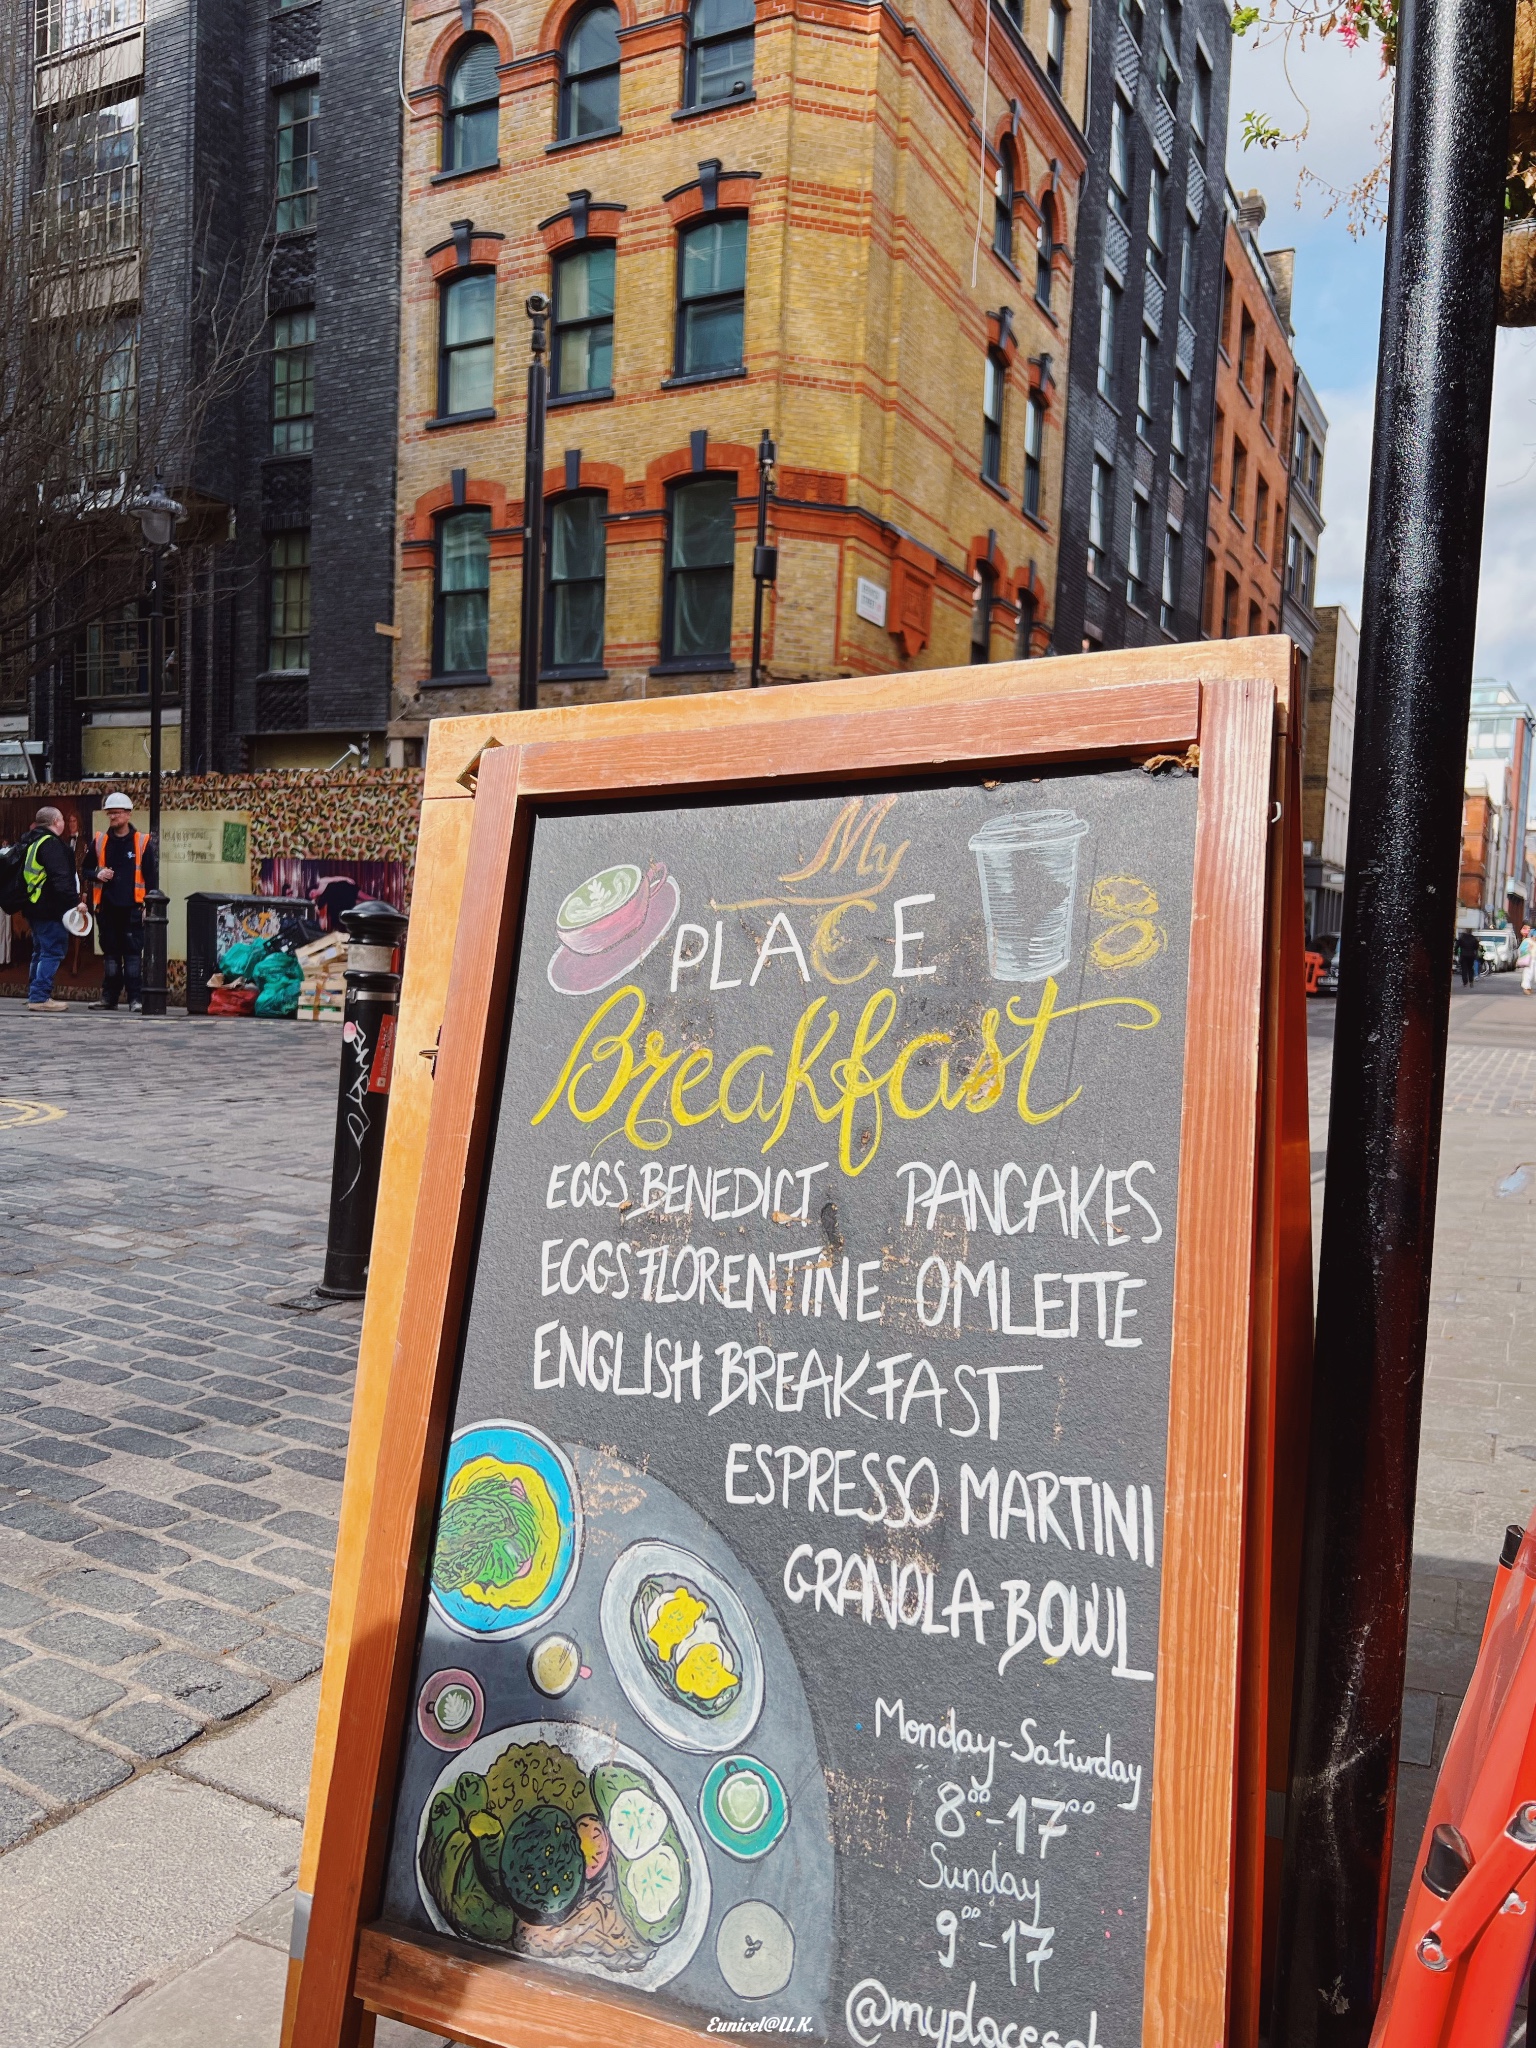 My
PLACE
Breakfast
EGGS BENEDICT PANCAKES
EGGS FLORENTINE OMLETTE
ENGLISH BREAKFAST
ESPRESSO MARTINI
GRANOLA BOWL
Monday-Saturday
8⁰⁰-17⁰⁰
Sunday
9⁰⁰-17
Eunicel@U.K.